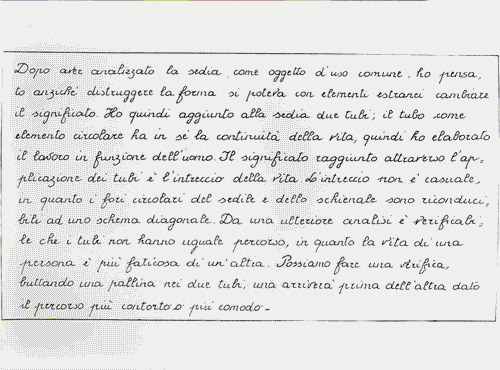 Dopo aver analizzato la sedia, come oggetto d'uso comune, ho pensa,
to anziché distruggere la forma si poteva con elementi estranei cambiare
il significato. Ho quindi aggiunto alla sedia due tubi; il tubo come
elemento circolare ha in sé la continuità della vita, quindi ho elaborato
il lavoro in funzione dell'uomo. Il significato raggiunto attraverso l'ap=
plicazione dei tubi è l'intreccio della vita. L'intreccio non è casuale,
in quanto i fori circolari del sedile e dello schienale sono riconduci=
bili ad uno schema diagonale. Da una ulteriore analisi è verificabi=
le che i tubi non hanno uguale percorso, in quanto la vita di una
persona è più faticosa di un'altra. Possiamo fare una verifica,
buttando una pallina nei due tubi, una arriverà prima dell'altra dato
il percorso più contorto o più comodo.